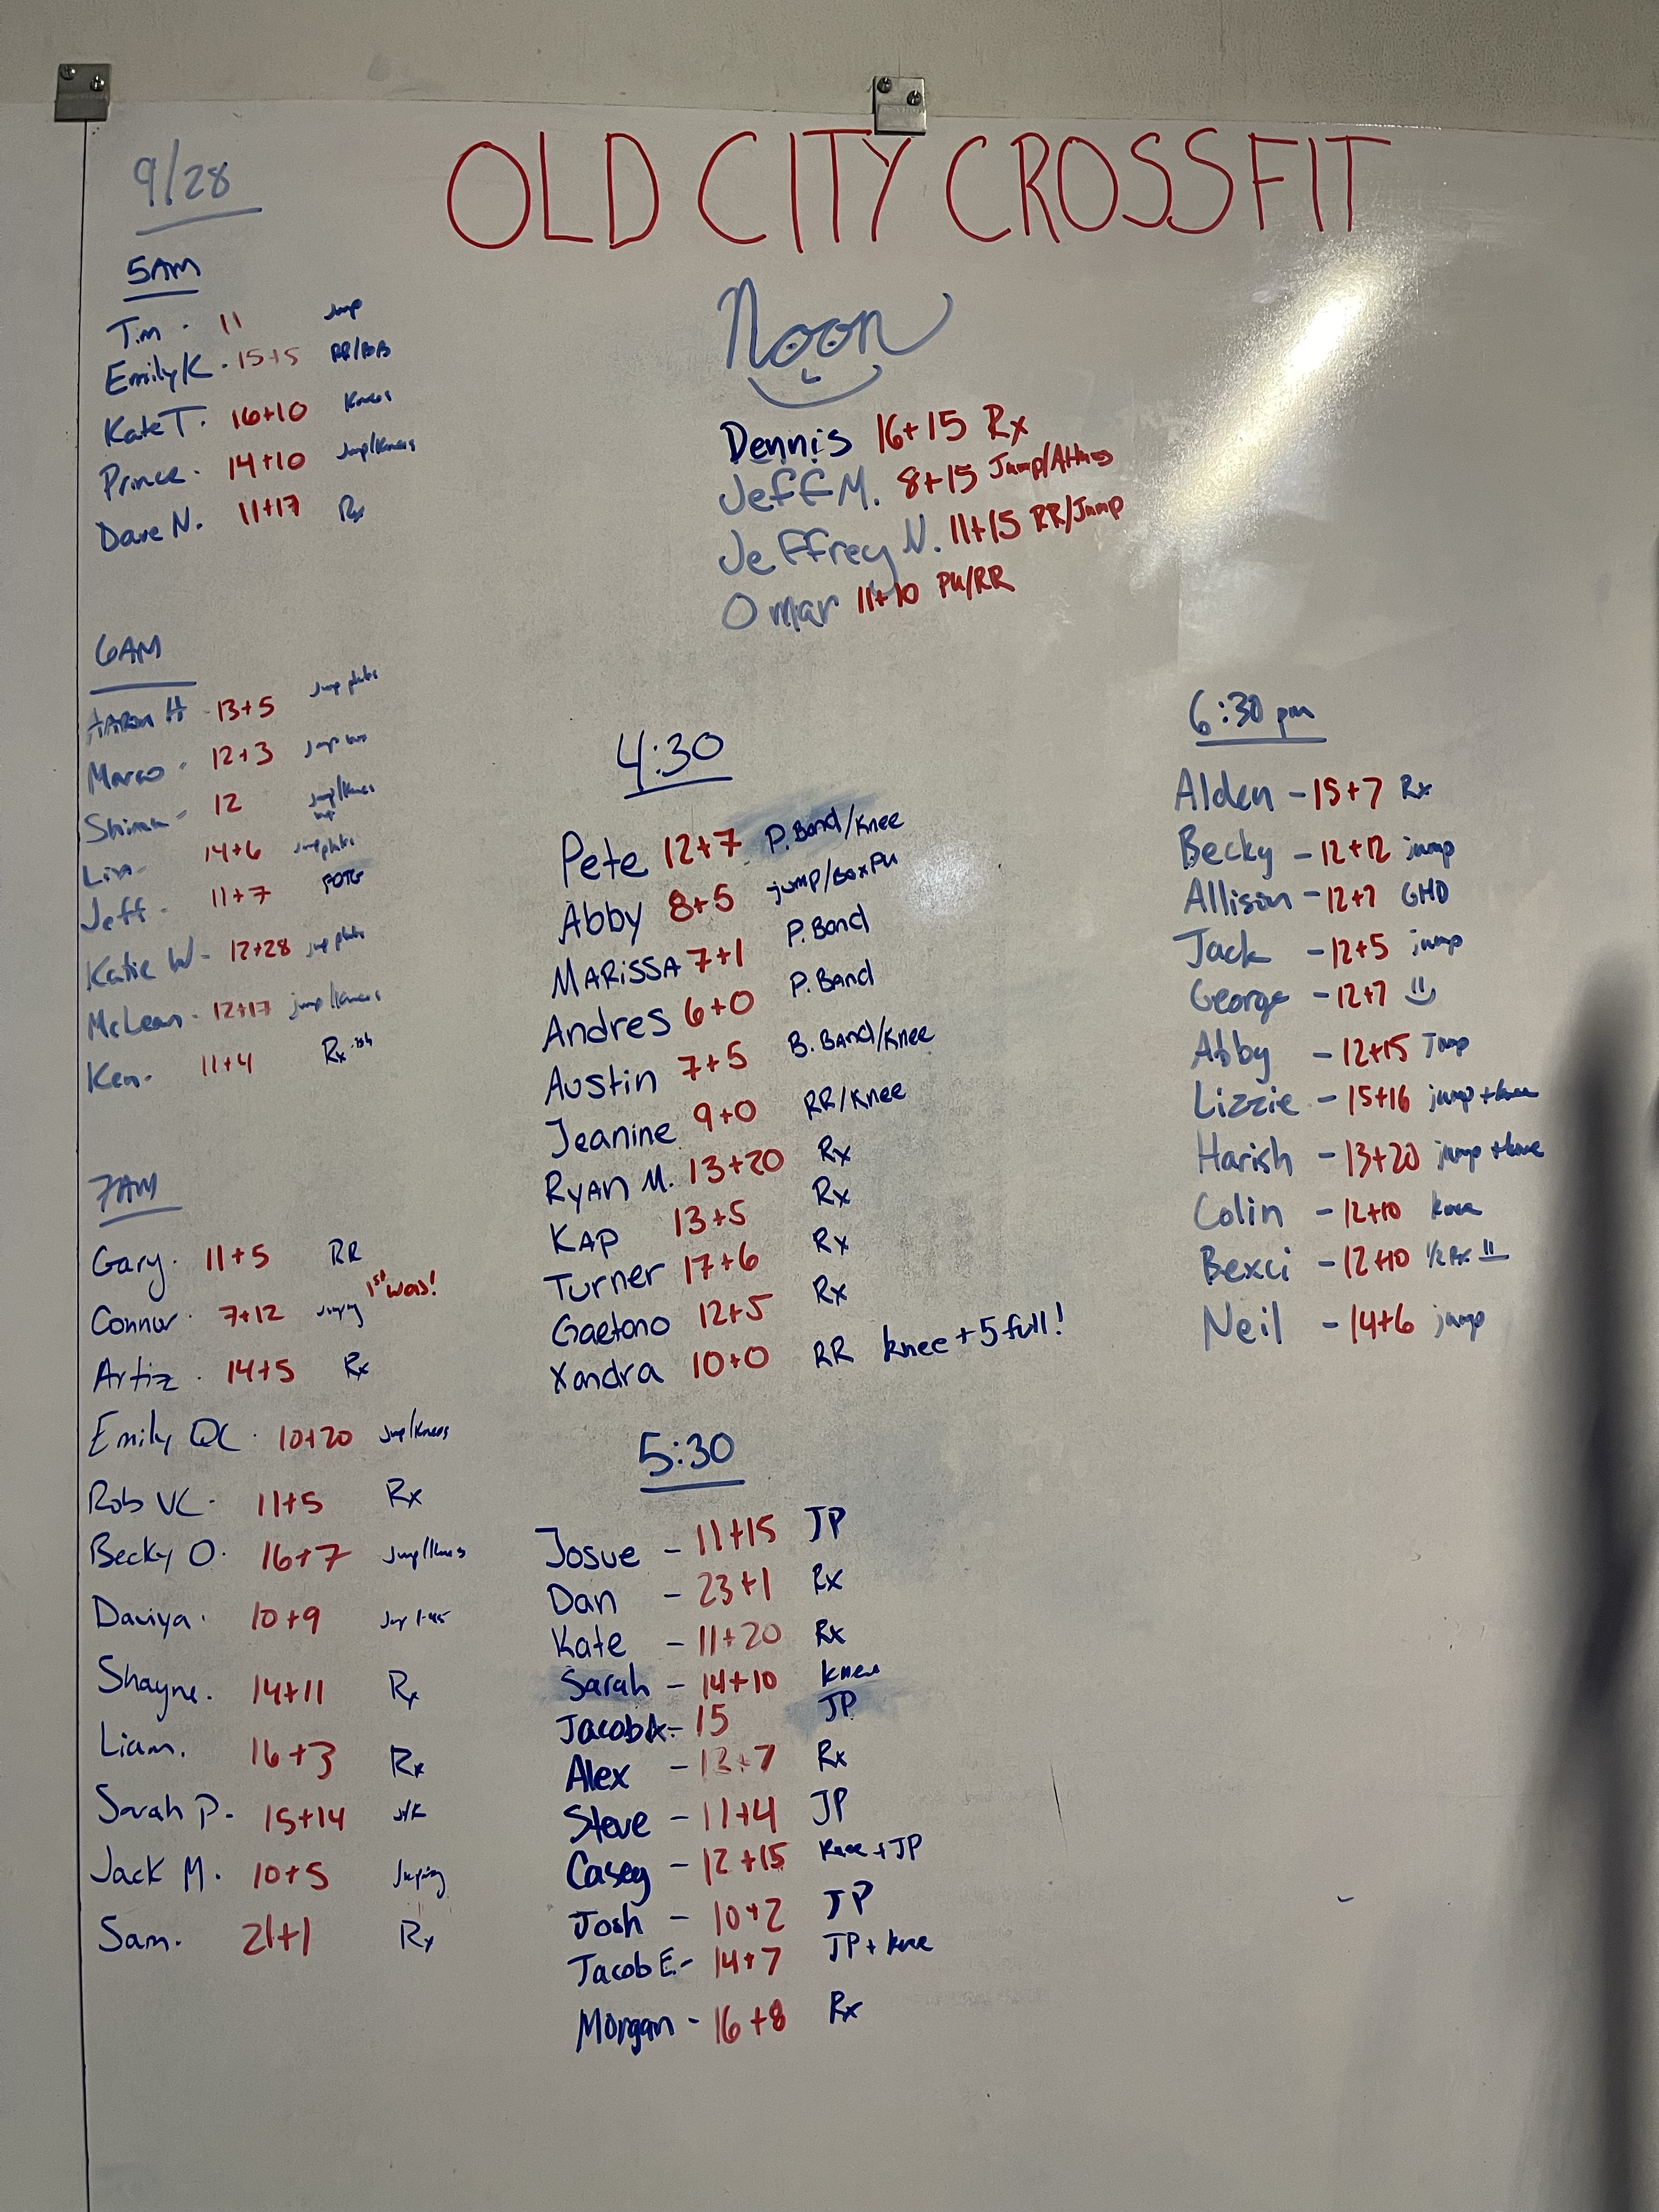 9/28
OLD CITY CROSSFIT
5AM
Tim - 11 Jump
Emily K - 15+5
Kate T. 16+10 Knees
Prince - 14+10 Jump/Knees
Dave N. 11+17 Rx
6AM
AARON H 13+5 Jump plates
Marco - 12+3 Jump
12 Jump/Knees
14+6 Jump plates
Jeff - 11+7
Katie W - 12+28 jump plates
McLean - 12+17 jump/knees
Ken - 11+4 Rx-ish
7AM
Gary - 11+5 RR
Connor - 7+12 Jumping 1st WOD!
14+5 Rx
Emily QC - 10+20 Jump/Knees
Rob VC - 11+5 Rx
Becky O. 16+7 Jump/Knees
Daviya - 10+9
Shayne. 14+11 Rx
Liam. 16+3 Rx
Sarah P. - 15+14 J/K
Jack M. 10+5 Jumping
Sam. 21+1 Rx
Noon
Dennis 16+15 Rx
Jeff M. 8+15
Jeffrey N. 11+15 RR/Jump
Omar 11+10 PU/RR
4:30
Pete 12+7 P. Band/Knee
Abby 8+5 jump/Box PU
MARiSSA 7+1 P. Band
Andres 6+0 P. BAnd
Austin 7+5 B. BAnd/Knee
Jeanine 9+0 RR/Knee
RyAN M. 13+20 Rx
KAP 13+5 Rx
Turner 17+6 Rx
Gaetano 12+5 Rx
Xandra 10+0 RR knee + 5 full!
5:30
Josue - 11+15 JP
Dan - 23+1 Rx
Kate - 11+20 Rx
Sarah - 14+10 knee
Jacob A. - 15 JP
Alex - 12+7 Rx
Steve - 11+4 JP
Casey - 12+15 Knee + JP
Josh - 10+2 JP
Jacob E - 14+7 JP + knee
Morgan - 16+8 Rx
6:30 pm
Alden - 15+7 Rx
Becky - 12+12 jump
Allison - 12+7 GHD
Jack - 12+5 jump
George - 12+7
Abby - 12+15 Jump
Lizzie - 15+16 jump + knee
Harish - 13+20 jump + knee
Colin - 12+10 knee
Bexci - 12+10 1/2 Rx
Neil - 14+6 jump